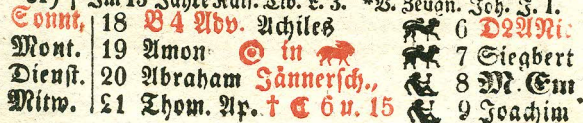 Im 15 Jahre Kais. Tib. L. 3. *V. Zeugn. Joh. J. 1.
Sonnt. 18 B 4 Adv. Achiles 6 D2A
Mont. 19 Amon in 7 Siegbert
Dienst. 20 Abraham Jännersch., 8 M.
Mitw. 21 Thom. Ap. † ☾ 6 u. 15 9 Joachim